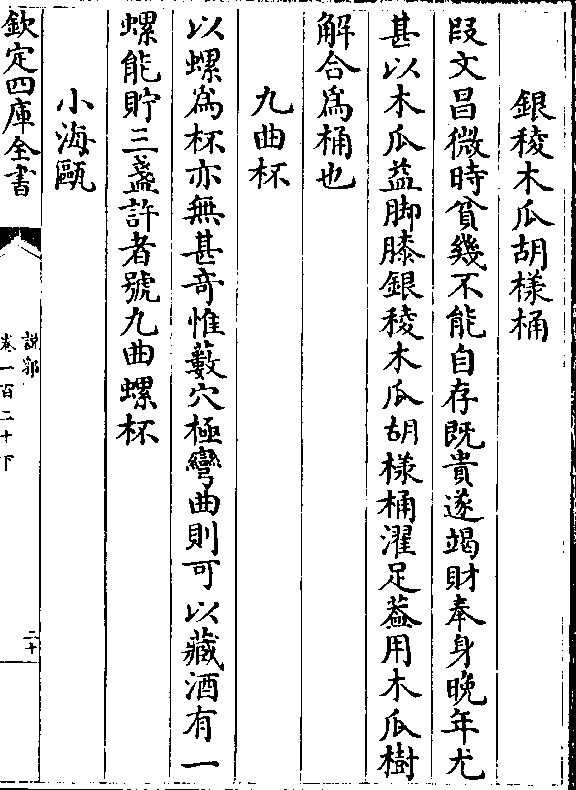 銀稜木瓜胡樣桶
段文昌微時貧幾不能自存既貴遂竭財奉身晚年尤
甚以木瓜益脚膝銀稜木瓜胡樣桶濯足葢用木瓜樹
解合爲桶也
九曲杯
以螺爲杯亦無甚竒惟藪穴極彎曲則可以藏酒有一
螺能貯三盞許者號九曲螺杯
小海甌
欽定四庫全書
說郛
卷一百二十下
二十